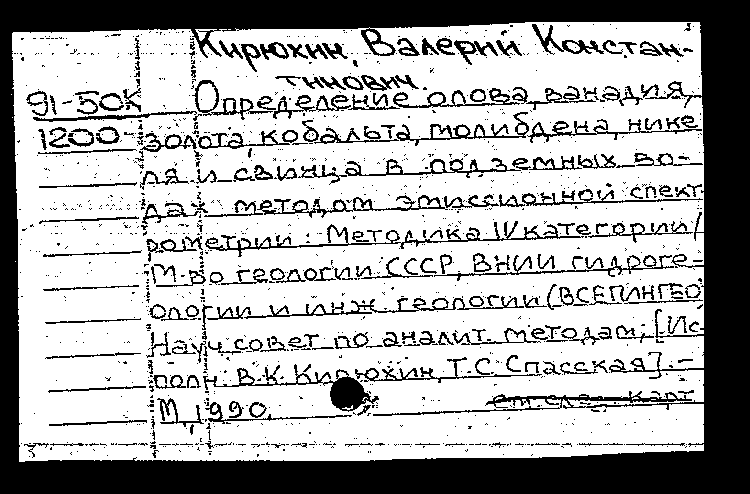 Кирюхин, Валерий Констан-
тинович.
91-50К Определение олова, ванадия,
1200- золота, кобальта, молибдена, нике
ля и свинца в подземных во-
дах методом эмиссионной спект-
рометрии : Методика IV категории /
М-во геологии СССР, ВНИИ гидроге-
ологии и инж. геологии (ВСЕГИНГЕО),
Науч. совет по аналит. методам; [Ис-
полн. В.К. Кирюхин, Т.С. Спасская]. –
М., 1990.
см. след. карт